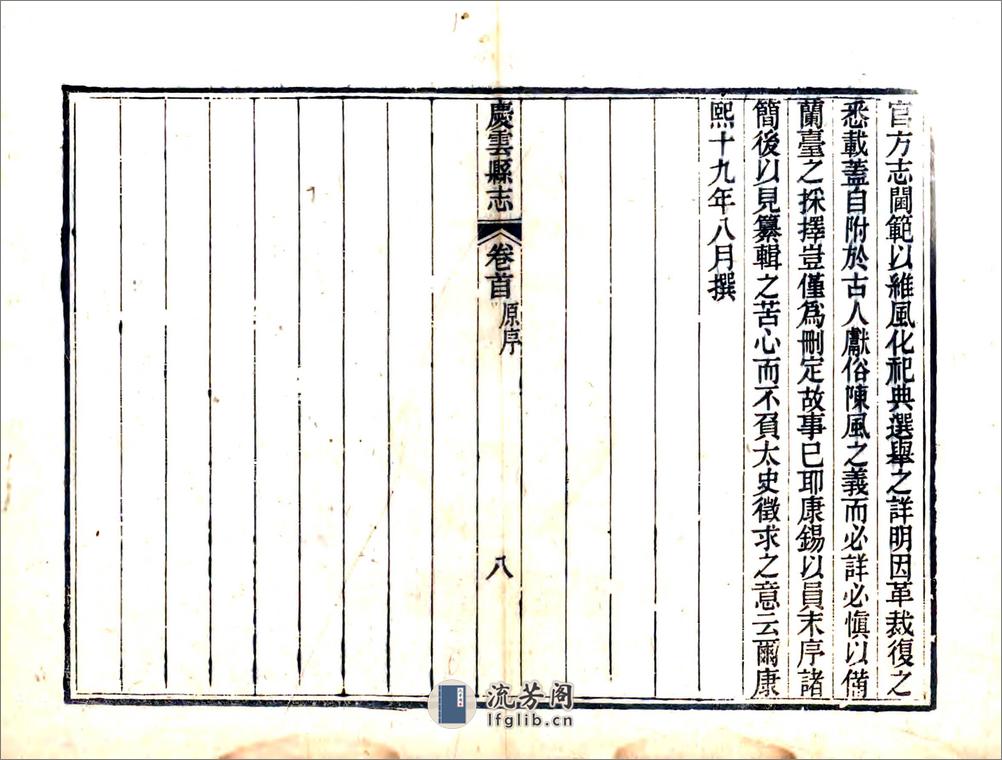 官方志閫範以維風化祀典選舉之詳明因革裁復之
悉載蓋自附於古人獻俗陳風之義而必詳必愼以備
蘭臺之採擇豈僅爲刪定故事已耶康錫以員末序諸
簡後以見纂輯之苦心而不負太史徵求之意云爾康
熙十九年八月撰
慶雲縣志 卷首 原序 八
流芳阁
lfglib.cn